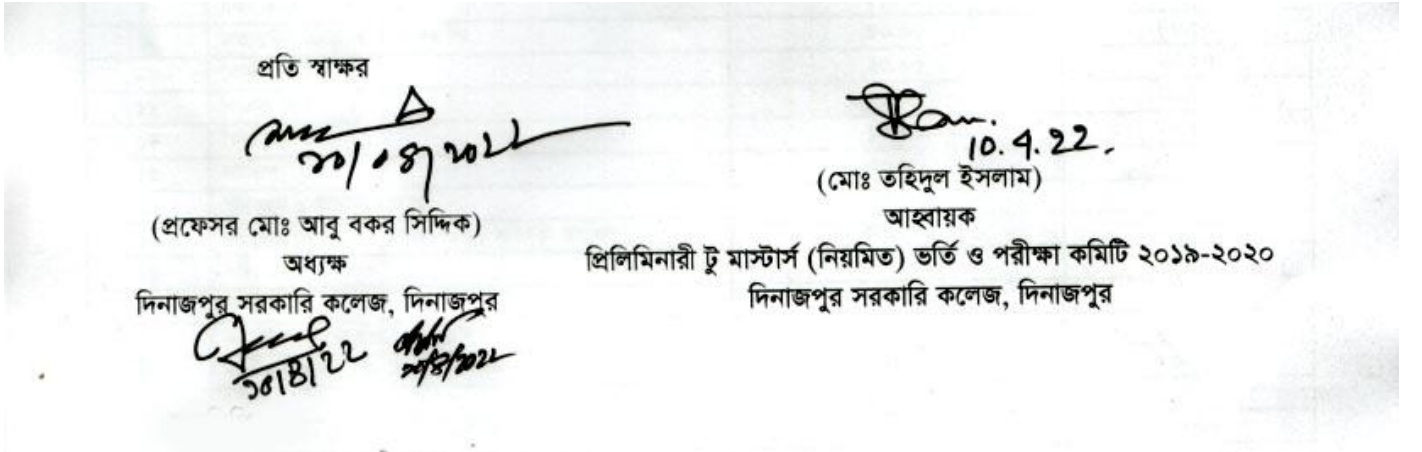 প্রতি স্বাক্ষর
১০/০৪/২০২২
(প্রফেসর মোঃ আবু বকর সিদ্দিক)
অধ্যক্ষ
দিনাজপুর সরকারি কলেজ, দিনাজপুর
১০/৪/২২
১০/৪/২০২২
10.4.22.
(মোঃ তহিদুল ইসলাম)
আহ্বায়ক
প্রিলিমিনারী টু মাস্টার্স (নিয়মিত) ভর্তি ও পরীক্ষা কমিটি ২০১৯-২০২০
দিনাজপুর সরকারি কলেজ, দিনাজপুর